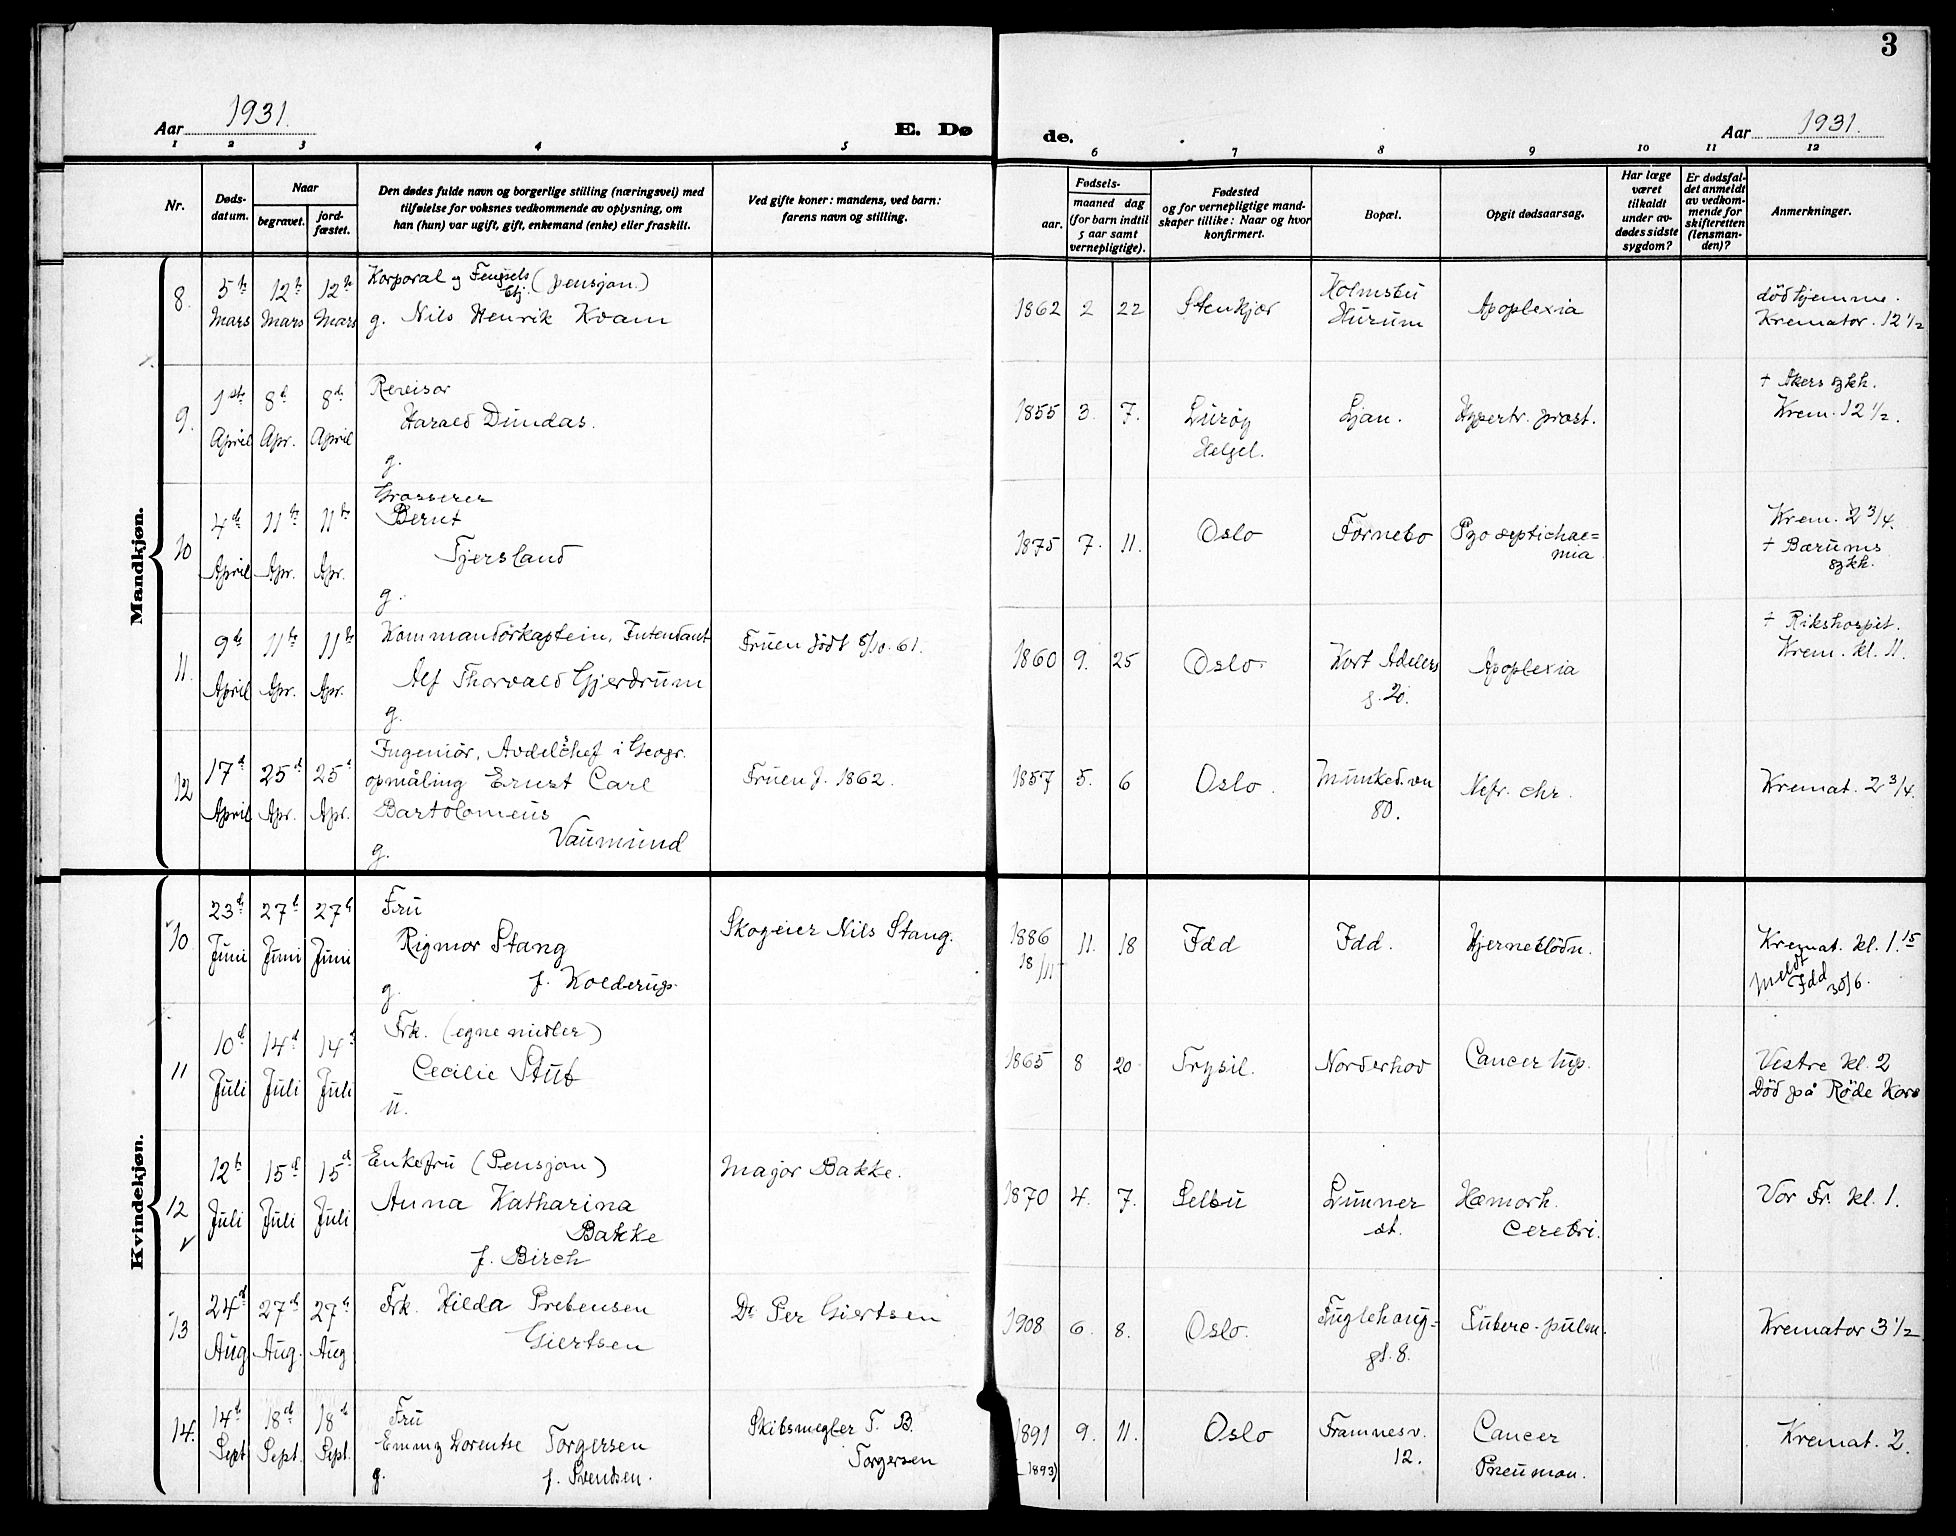 3
Aar 1931.
E. Dø
de.
Aar 1931.
1 2 3 4 5 6 7 8 9 10 11 12
Nr.
Døds-
datum.
Naar
begravet.
jord-
fæstet.
Den dødes fulde navn og borgerlige stilling (næringsvei) med
tilføielse for voksnes vedkommende av oplysning, om
han (hun) var ugift, gift, enkemand (enke) eller fraskilt.
Ved gifte koner: mandens, ved barn:
farens navn og stilling.
Fødsels-
aar.
maaned dag
(for barn indtil
5 aar samt
vernepligtige).
Fødested
og for vernepligtige mand-
skaper tillike: Naar og hvor
konfirmert.
Bopæl.
Opgit dødsaarsag.
Har læge
været
tilkaldt
under av-
dødes sidste
sygdom?
Er dødsfal-
det anmeldt
av vedkom-
mende for
skifteretten
(lensman-
den)?
Anmerkninger.
Mandkjøn.
8. 5te Mars 12te Mars 12te Mars
Korporal og Fengsels
btj. (pensjon.)
g. Nils Henrik Kvam
1862 2 22
Stenkjær
Holmsbu
Hurum
Apoplexia
död hjemme.
Kremator. 12 1/2
9. 1ste April 8d Apr. 8de April
Revisor
Harald Dundas.
g.
1855 3. 7.
Lurøy
Helgel.
Ljan.
Hypertr. prost.
+ Akers sykh.
Krem. 12 1/2.
10 4de April 11te Apr. 11te Apr.
Grosserer
Bernt
Tjersland
g.
1875 7. 11.
Oslo
Fornebo
Pyo septichae=
mia.
Krem. 2 3/4.
+ Bærums
sykh.
11. 9de April 11te Apr. 11te Apr.
Kommandörkaptein, Intendant
Alf Thorvald Gjerdrum
g.
Fruen födt 5/10. 61.
1860 9. 25
Oslo
Kort Adelers
g. 20.
Apoplexia
+ Rikshospit.
Krem. kl. 11.
12 17d April 25d Apr. 25d Apr.
Ingeniör, Avdel.chef i Geogr.
opmåling Ernst Carl
Bartolomeus
Vaumund
g.
Fruen f. 1862.
1857 5. 6
Oslo.
Munked.vn
80.
Nefr. chr.
Kremat. 2 3/4.
Kvindekjøn.
10. 23de Juni 27de Juni 27de Juni
Fru
Rigmor Stang
g. f. Kolderup.
Skogeier Nils Stang.
1886 11. 18
18/11
Idd
Idd.
Hjerneblödn.
Kremat. kl. 1.15
Meldt
Idd 30/6.
11 10d Juli 14d Juli 14d Juli
Frk. (egne midler)
Cecilie Stub
u.
1865 8 20
Trysil.
Norderhov
Cancer hep.
Vestre kl. 2
Död på Röde Kors
12 12te Juli 15d Juli 15d Juli
Enkefru (Pensjon)
Anna Katharina
Bakke
f. Birch
Major Bakke.
1870 4. 7.
Selbu
Lunner
st.
Hæmorh.
cerebri.
Vor Fr. kl. 1.
13 24d Aug 27de Aug. 27de Aug
Frk. Hilda Prebensen
Giertsen
Dr Per Giertsen
1908 6. 8.
Oslo.
Fuglehaug=
gt. 8.
Tuberc. pulm.
Kremator 3 1/2
14. 14de Sept 18de Sept. 18de Sept.
Fru
Emmy Lorentse Torgersen
g. f. Svendsen.
Skibsmegler T. B.
Torgersen
1891 9. 11.
1893)
Oslo
Framnesv.
12.
Cancer
Pneumon.
Kremat. 2.